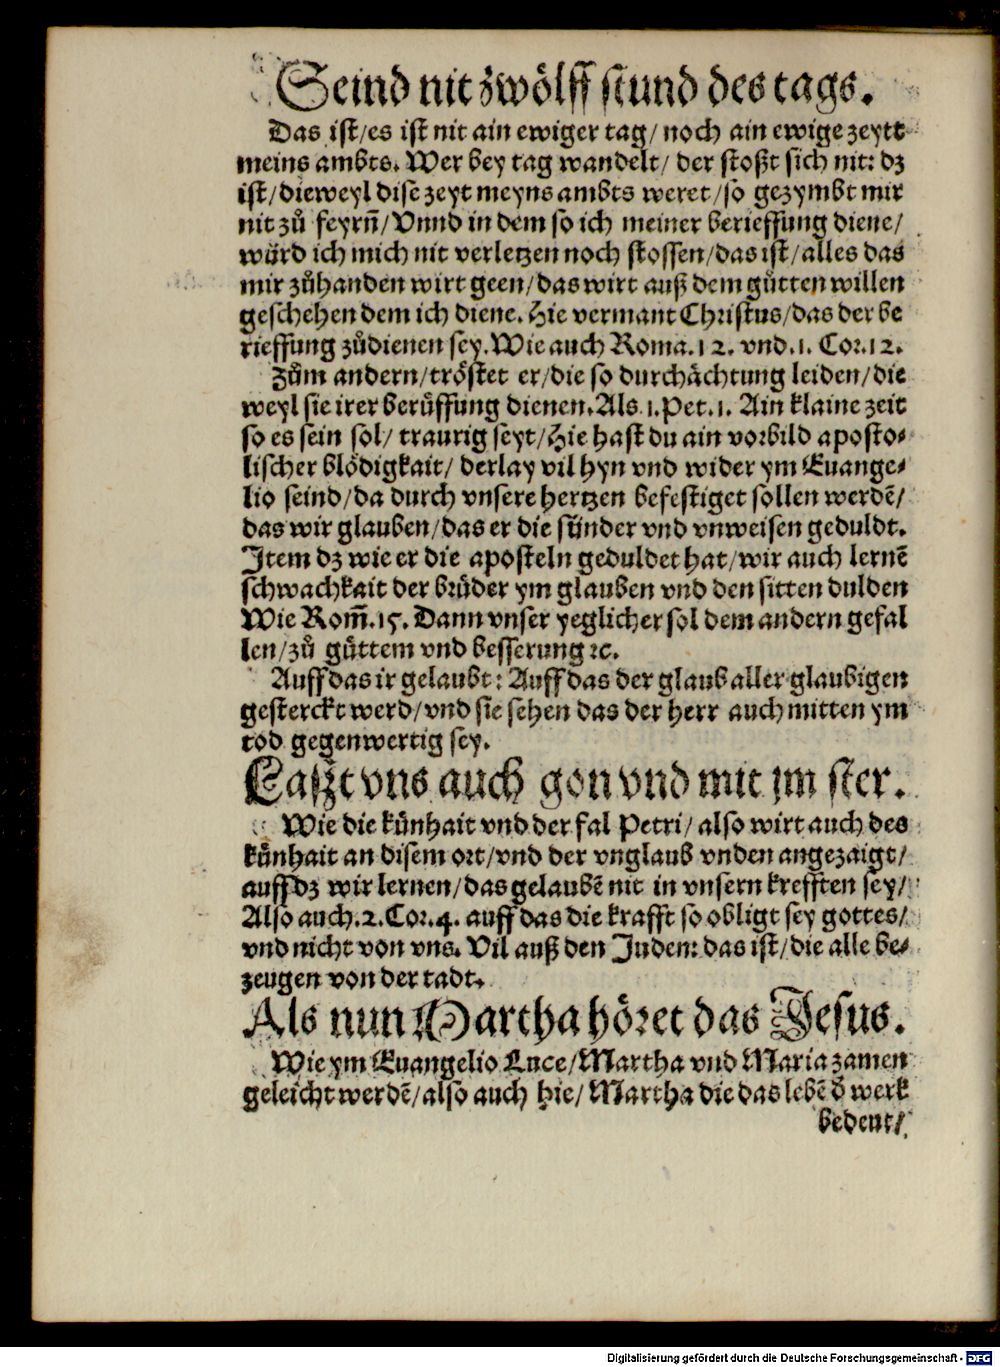 Seind nit zwölff stund des tags.
Das ist/es ist nit ain ewiger tag/ noch ain ewige zeytt
meins ambts. Wer bey tag wandelt/ der stoßt sich nit: dz
ist/dieweyl dise zeyt meyns ambts weret/so gezymbt mir
nit zů feyrn̄/Vnnd in dem so ich meiner berieffung diene/
würd ich mich nit verletzen noch stossen/das ist/alles das
mir zůhanden wirt geen/das wirt auß dem gůtten willen
geschehen dem ich diene. Hie vermant Christus/das der be
rieffung zůdienen sey. Wie auch Roma.12. vnd.1. Cor.12.
Zům andern/tröstet er/die so durchächtung leiden/die
weyl sie irer berůffung dienen. Als 1.Pet.1. Ain klaine zeit
so es sein sol/ traurig seyt/Hie hast du ain vorbild aposto⸗
lischer blödigkait/ derlay vil hyn vnd wider ym Euange⸗
lio seind/da durch vnsere hertzen befestiget sollen werdē/
das wir glauben/das er die sünder vnd vnweisen geduldt.
Item dz wie er die aposteln geduldet hat/wir auch lernē
schwachkait der brüder ym glauben vnd den sitten dulden
Wie Rom̄.15. Dann vnser yeglicher sol dem andern gefal
len/zů gůttem vnd besserung ꝛc.
Auff das ir gelaubt: Auff das der glaub aller glaubigen
gesterckt werd/vnd sie sehen das der herr auch mitten ym
tod gegenwertig sey.
Laßzt vns auch gon vnd mit jm ster.
Wie die künhait vnd der fal Petri/ also wirt auch des
künhait an disem ort/vnd der vnglaub vnden angezaigt/
auff dz wir lernen/das gelaubē nit in vnsern krefften sey/
Also auch.2.Cor.4. auff das die krafft so obligt sey gottes/
vnd nicht von vns. Vil auß den Juden: das ist/die alle be⸗
zeugen von der tadt.
Als nun Martha höret das Jesus.
Wie ym Euangelio Luce/Martha vnd Maria zamen
geleicht werdē/also auch hie/ Martha die das lebē d̄ werk
bedeut/
Digitalisierung gefördert durch die Deutsche Forschungsgemeinschaft - DFG